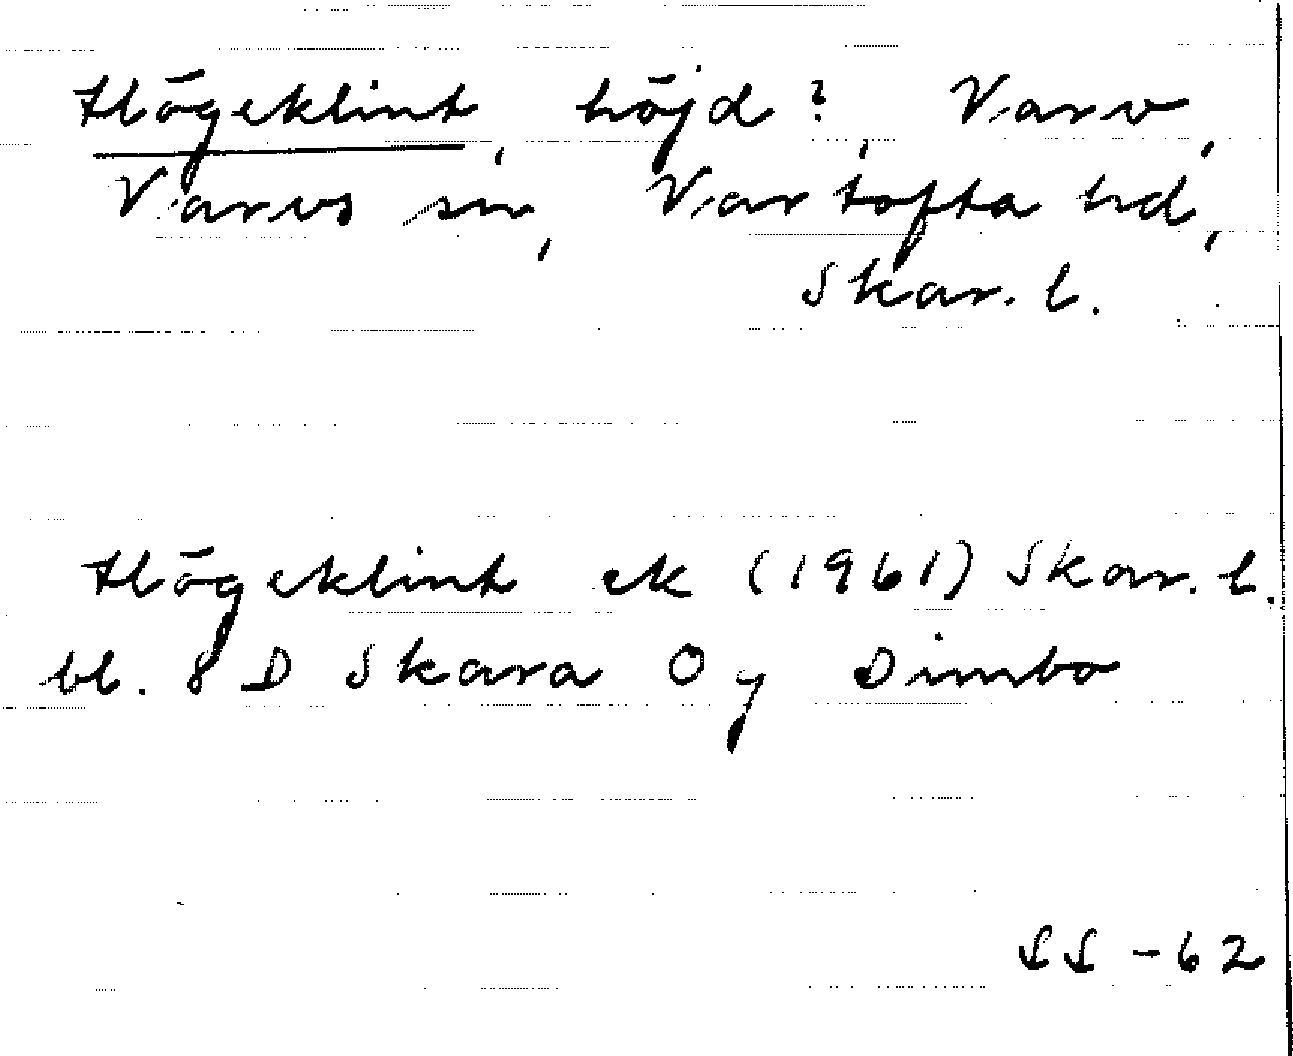 Högeklint, höjd?, Varv,
Varvs sn, Vartofta hd,
Skar. l.
Högeklint ek (1961) Skar. l.
bl. 8 D Skara O y Dimbo
SS -62